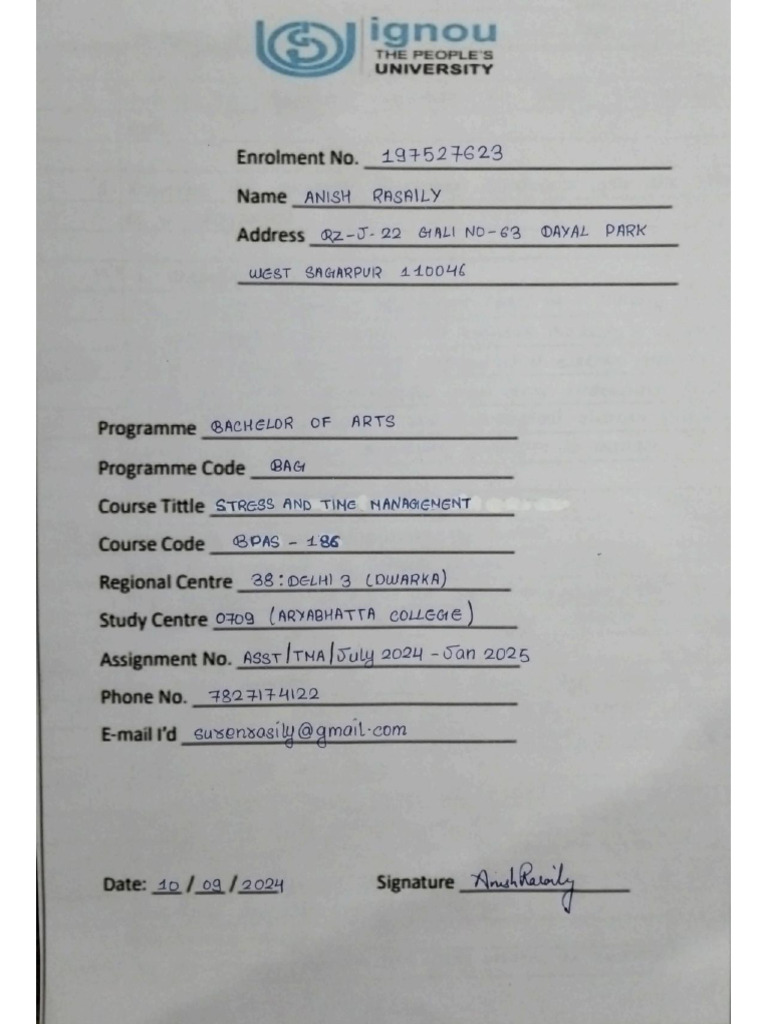 ignou
THE PEOPLE'S
UNIVERSITY
Enrolment No. 197527623
Name ANISH RASAILY
Address RZ-J-22 GALI NO-63 DAYAL PARK
WEST SAGARPUR 110046
Programme BACHELOR OF ARTS
Programme Code BAG
Course Tittle STRESS AND TIME MANAGEMENT
Course Code BPAS - 186
Regional Centre 38:DELHI 3 (DWARKA)
Study Centre 0709 (ARYABHATTA COLLEGE)
Assignment No. ASST/TMA/July 2024 - Jan 2025
Phone No. 7827174122
E-mail I'd surenrasily@gmail.com
Date: 10 / 09 / 2024 Signature Anish Rasaily